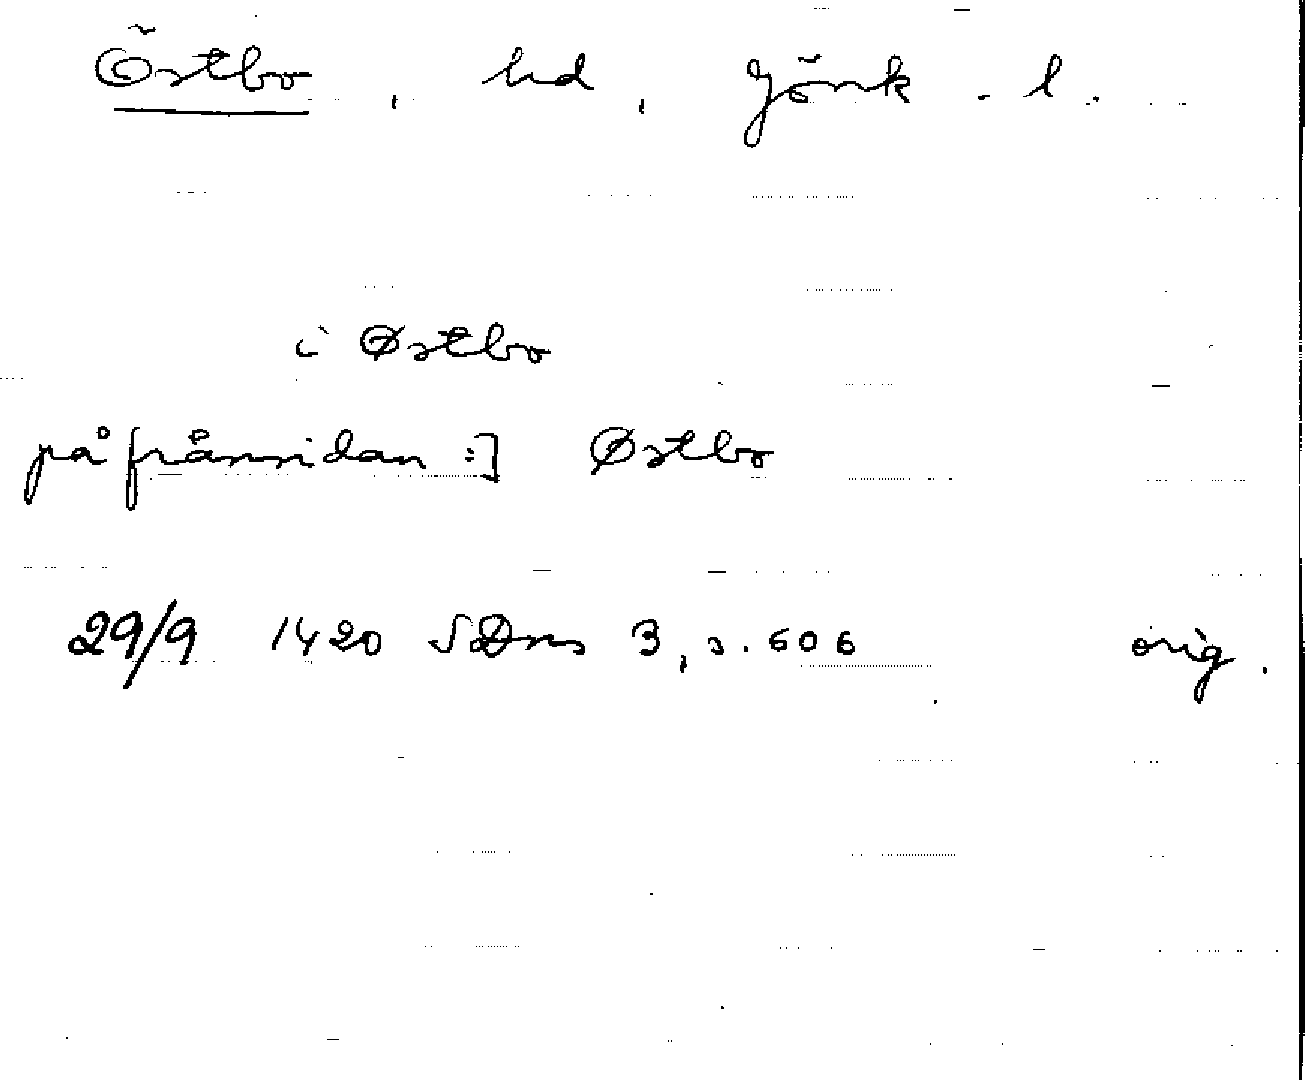 Östbo, hd, Jönk. l.
i Østbo
på frånsidan:] Østbo
29/9 1420 SDns 3, s. 606 orig.